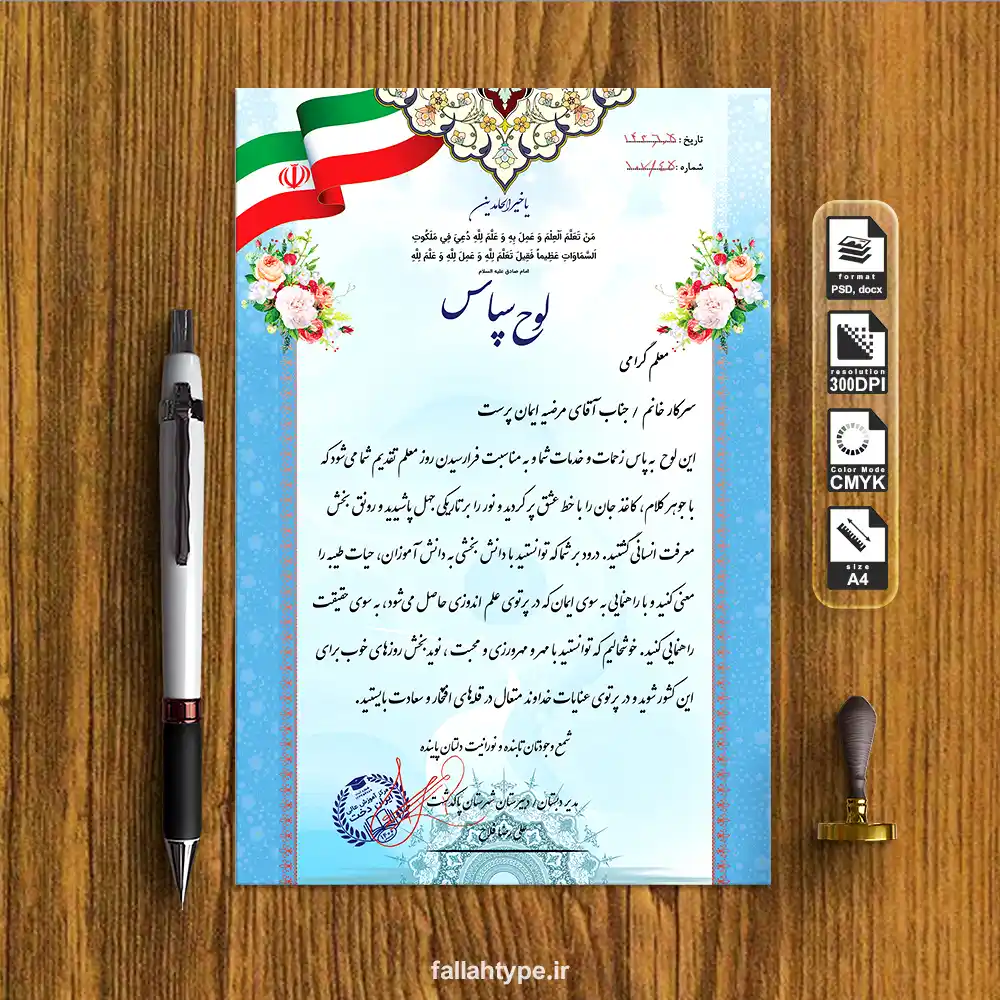 تاریخ :
شماره :
یا خیر الحامدین
مَنْ تَعَلَّمَ اَلْعِلْمَ وَ عَمِلَ بِهِ وَ عَلَّمَ لِلَّهِ دُعِيَ فِي مَلَكُوتِ
اَلسَّمَاوَاتِ عَظِيماً فَقِيلَ تَعَلَّمَ لِلَّهِ وَ عَمِلَ لِلَّهِ وَ عَلَّمَ لِلَّهِ
امام صادق علیه السلام
لوح سپاس
معلم گرامی
سرکار خانم / جناب آقای مرضیه ایمان پرست
این لوح به پاس زحمات و خدمات شما و به مناسبت فرارسیدن روز معلم تقدیم شما می‌شود که
با جوهر کلام، کاغذ جان را با خط عشق پر کردید و نور را بر تاریکی جهل پاشیدید و رونق بخش
معرفت انسانی گشتید. درود بر شما که توانستید با دانش بخشی به دانش آموزان، حیات طیبه را
معنی کنید و با راهنمایی به سوی ایمان که در پرتوی علم اندوزی حاصل می‌شود، به سوی حقیقت
راهنمایی کنید. خوشحالیم که توانستید با مهر و مهرورزی و محبت ، نوید بخش روزهای خوب برای
این کشور شوید و در پرتوی عنایات خداوند متعال در قله‌های افتخار و سعادت بایستید.
شمع وجودتان تابنده و نورانیت دلتان پاینده
مدیر دبستان/ دبیرستان شهرستان پاکدشت
علی رضا فلاح
مرکز آموزش عالی
ایران دخت
format
PSD, docx
resolution
300DPI
Color Mode
CMYK
size
A4
fallahtype.ir